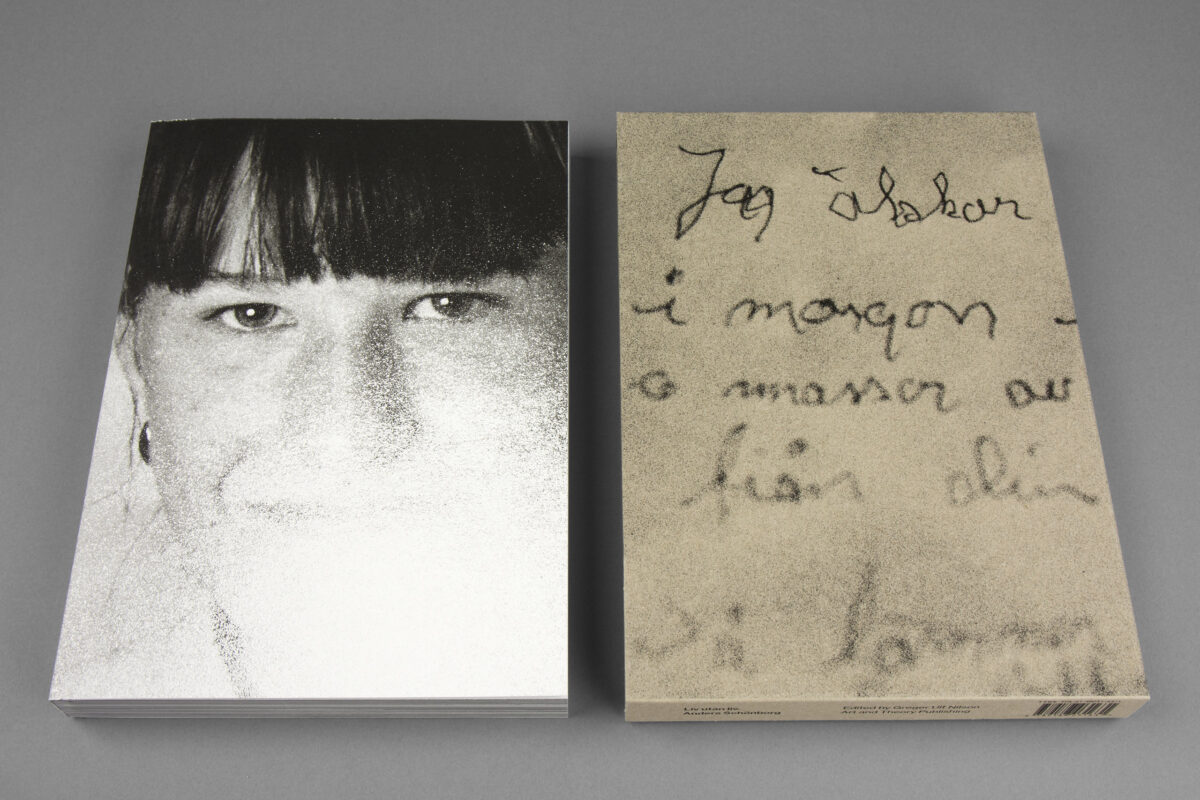 Jag älskar
i morgon -
o massor av
från din
vi
Liv utan liv.
Anders Schönborg
Edited by Greger Ulf Nilson
Art and Theory Publishing